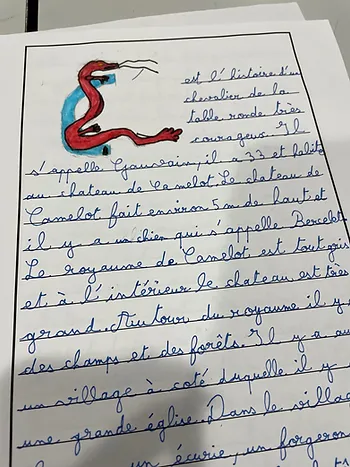 C
est l'histoire d'un
chevalier de la
table ronde très
courageux. Il
s'appelle Gauvain, il a 33 et habite
au chateau de Camelot. Le chateau de
Camelot fait environ 5 m de haut et
il y a un chien qui s'appelle Bercelet
Le royaume de Camelot est tout gris
et à l'intérieur le chateau est très
grand. Autour du royaume il y
des champs et des forêts. Il y a au
un village à coté duquelle il y
une grande église. Dans le villag
un écurie, un forgeron